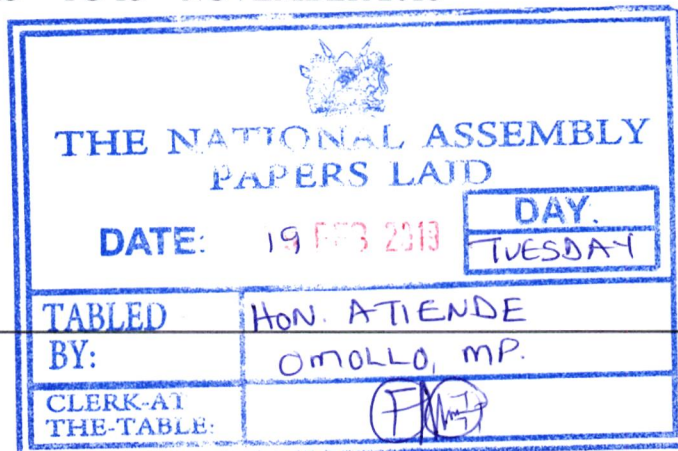 THE NATIONAL ASSEMBLY
PAPERS LAID
DATE: 19 FEB 2019 DAY.
TUESDAY
TABLED BY: HON. ATIENDE
OMOLLO, MP.
CLERK-AT
THE-TABLE: